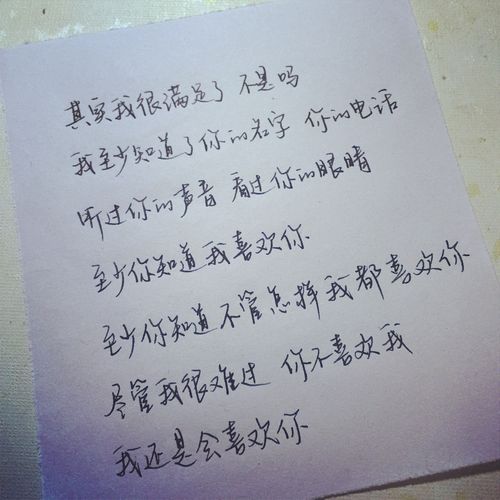 其实我很满足了 不是吗
我至少知道了你的名字 你的电话
听过你的声音 看过你的眼睛
至少你知道我喜欢你
至少你知道不管怎样我都喜欢你
尽管我很难过 你不喜欢我
我还是会喜欢你